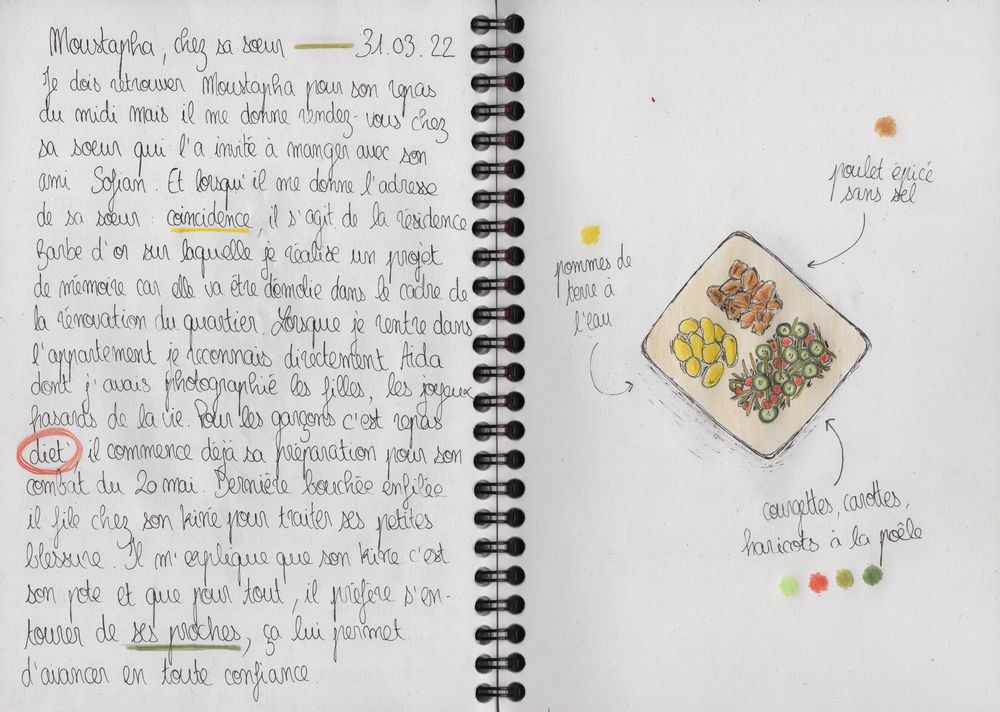 Moustapha, chez sa sœur — 31.03.22
Je dois retrouver Moustapha pour son repas
du midi mais il me donne rendez-vous chez
sa sœur qui l'a invité à manger avec son
ami Sofian. Et lorsqu'il me donne l'adresse
de sa sœur : coïncidence, il s'agit de la résidence
Barbe d'or sur laquelle je réalise un projet
de mémoire car elle va être démolie dans le cadre de
la rénovation du quartier. Lorsque je rentre dans
l'appartement je reconnais directement Aida
dont j'avais photographié les filles, les joyeux
hasards de la vie. Pour les garçons c'est repas
diet', il commence déjà sa préparation pour son
combat du 20 mai. Dernière bouchée enfilée
il file chez son kiné pour traiter ses petites
blessure. Il m'explique que son kiné c'est
son pote et que pour tout, il préfère s'en-
tourer de ses proches, ça lui permet
d'avancer en toute confiance.
poulet épicé
sans sel
pommes de
terre à
l'eau
courgettes, carottes,
haricots à la poêle